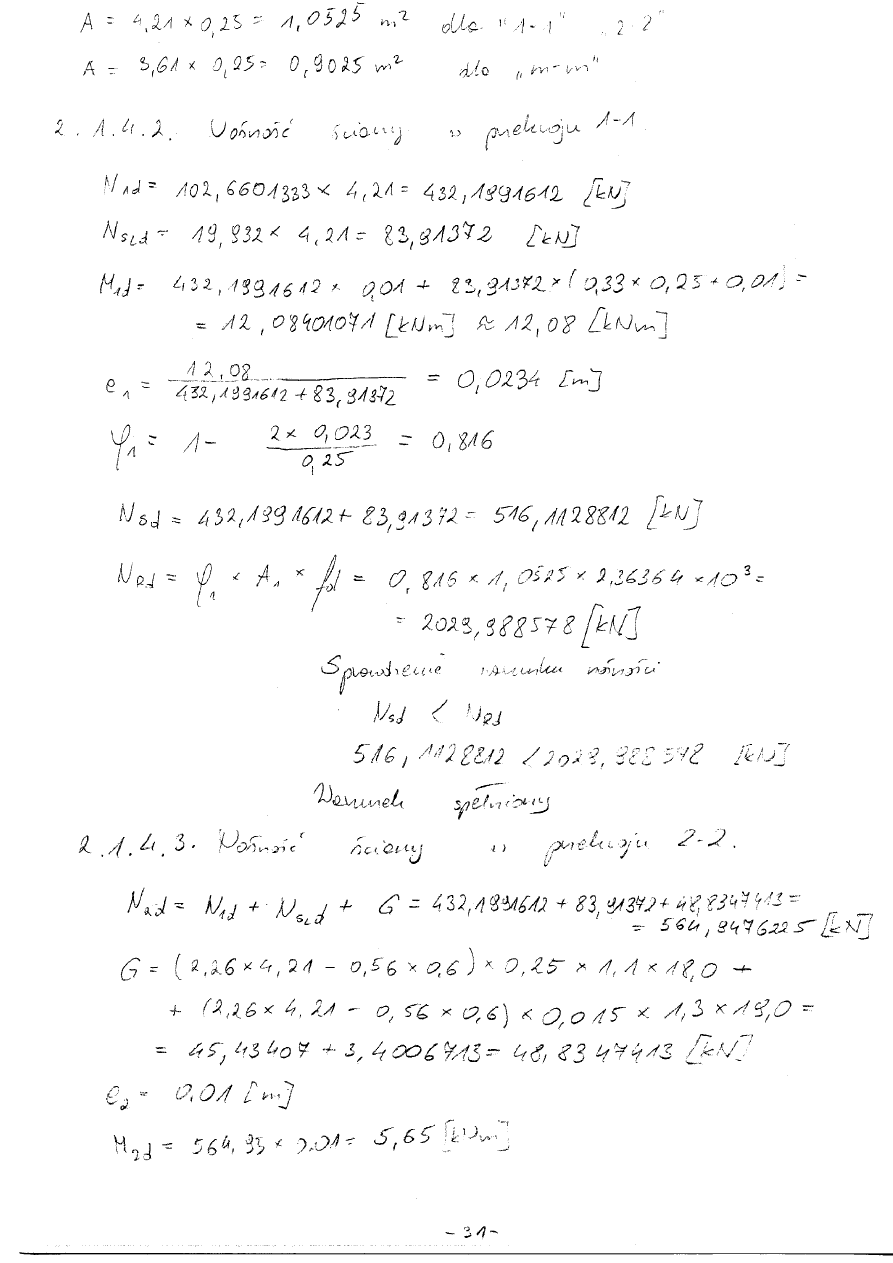 A = 4,21 × 0,25 = 1,0525 m² dla "1-1" „2-2"
A = 3,61 × 0,25 = 0,9025 m² dla „m-m"
2.1.4.2. Nośność ściany w przekroju 1-1.
N1d = 102,6601333 × 4,21 = 432,1991612 [kN]
NsLd = 19,932 × 4,21 = 83,91372 [kN]
M1d = 432,1991612 × 0,01 + 83,91372 × (0,33 × 0,25 + 0,01) =
= 12,08401071 [kNm] ≈ 12,08 [kNm]
e1 = 12,08 / 432,1991612 + 83,91372 = 0,0234 [m]
φ1 = 1 - 2 × 0,023 / 0,25 = 0,816
Nsd = 432,1991612 + 83,91372 = 516,1128812 [kN]
NRd = φ1 × A1 × fd = 0,816 × 1,0525 × 2,36364 × 10³ =
= 2029,988578 [kN]
Sprawdzenie warunku nośności
Nsd < NRd
516,1128812 < 2029,988578 [kN]
Warunek spełniony
2.1.4.3. Nośność ściany w przekroju 2-2.
N2d = N1d + NsLd + G = 432,1991612 + 83,91372 + 48,8347413 =
= 564,9476225 [kN]
G = (2,26 × 4,21 - 0,56 × 0,6) × 0,25 × 1,1 × 18,0 +
+ (2,26 × 4,21 - 0,56 × 0,6) × 0,015 × 1,3 × 19,0 =
= 45,43407 + 3,4006713 = 48,8347413 [kN]
e2 = 0,01 [m]
M2d = 564,95 × 0,01 = 5,65 [kNm]
-31-